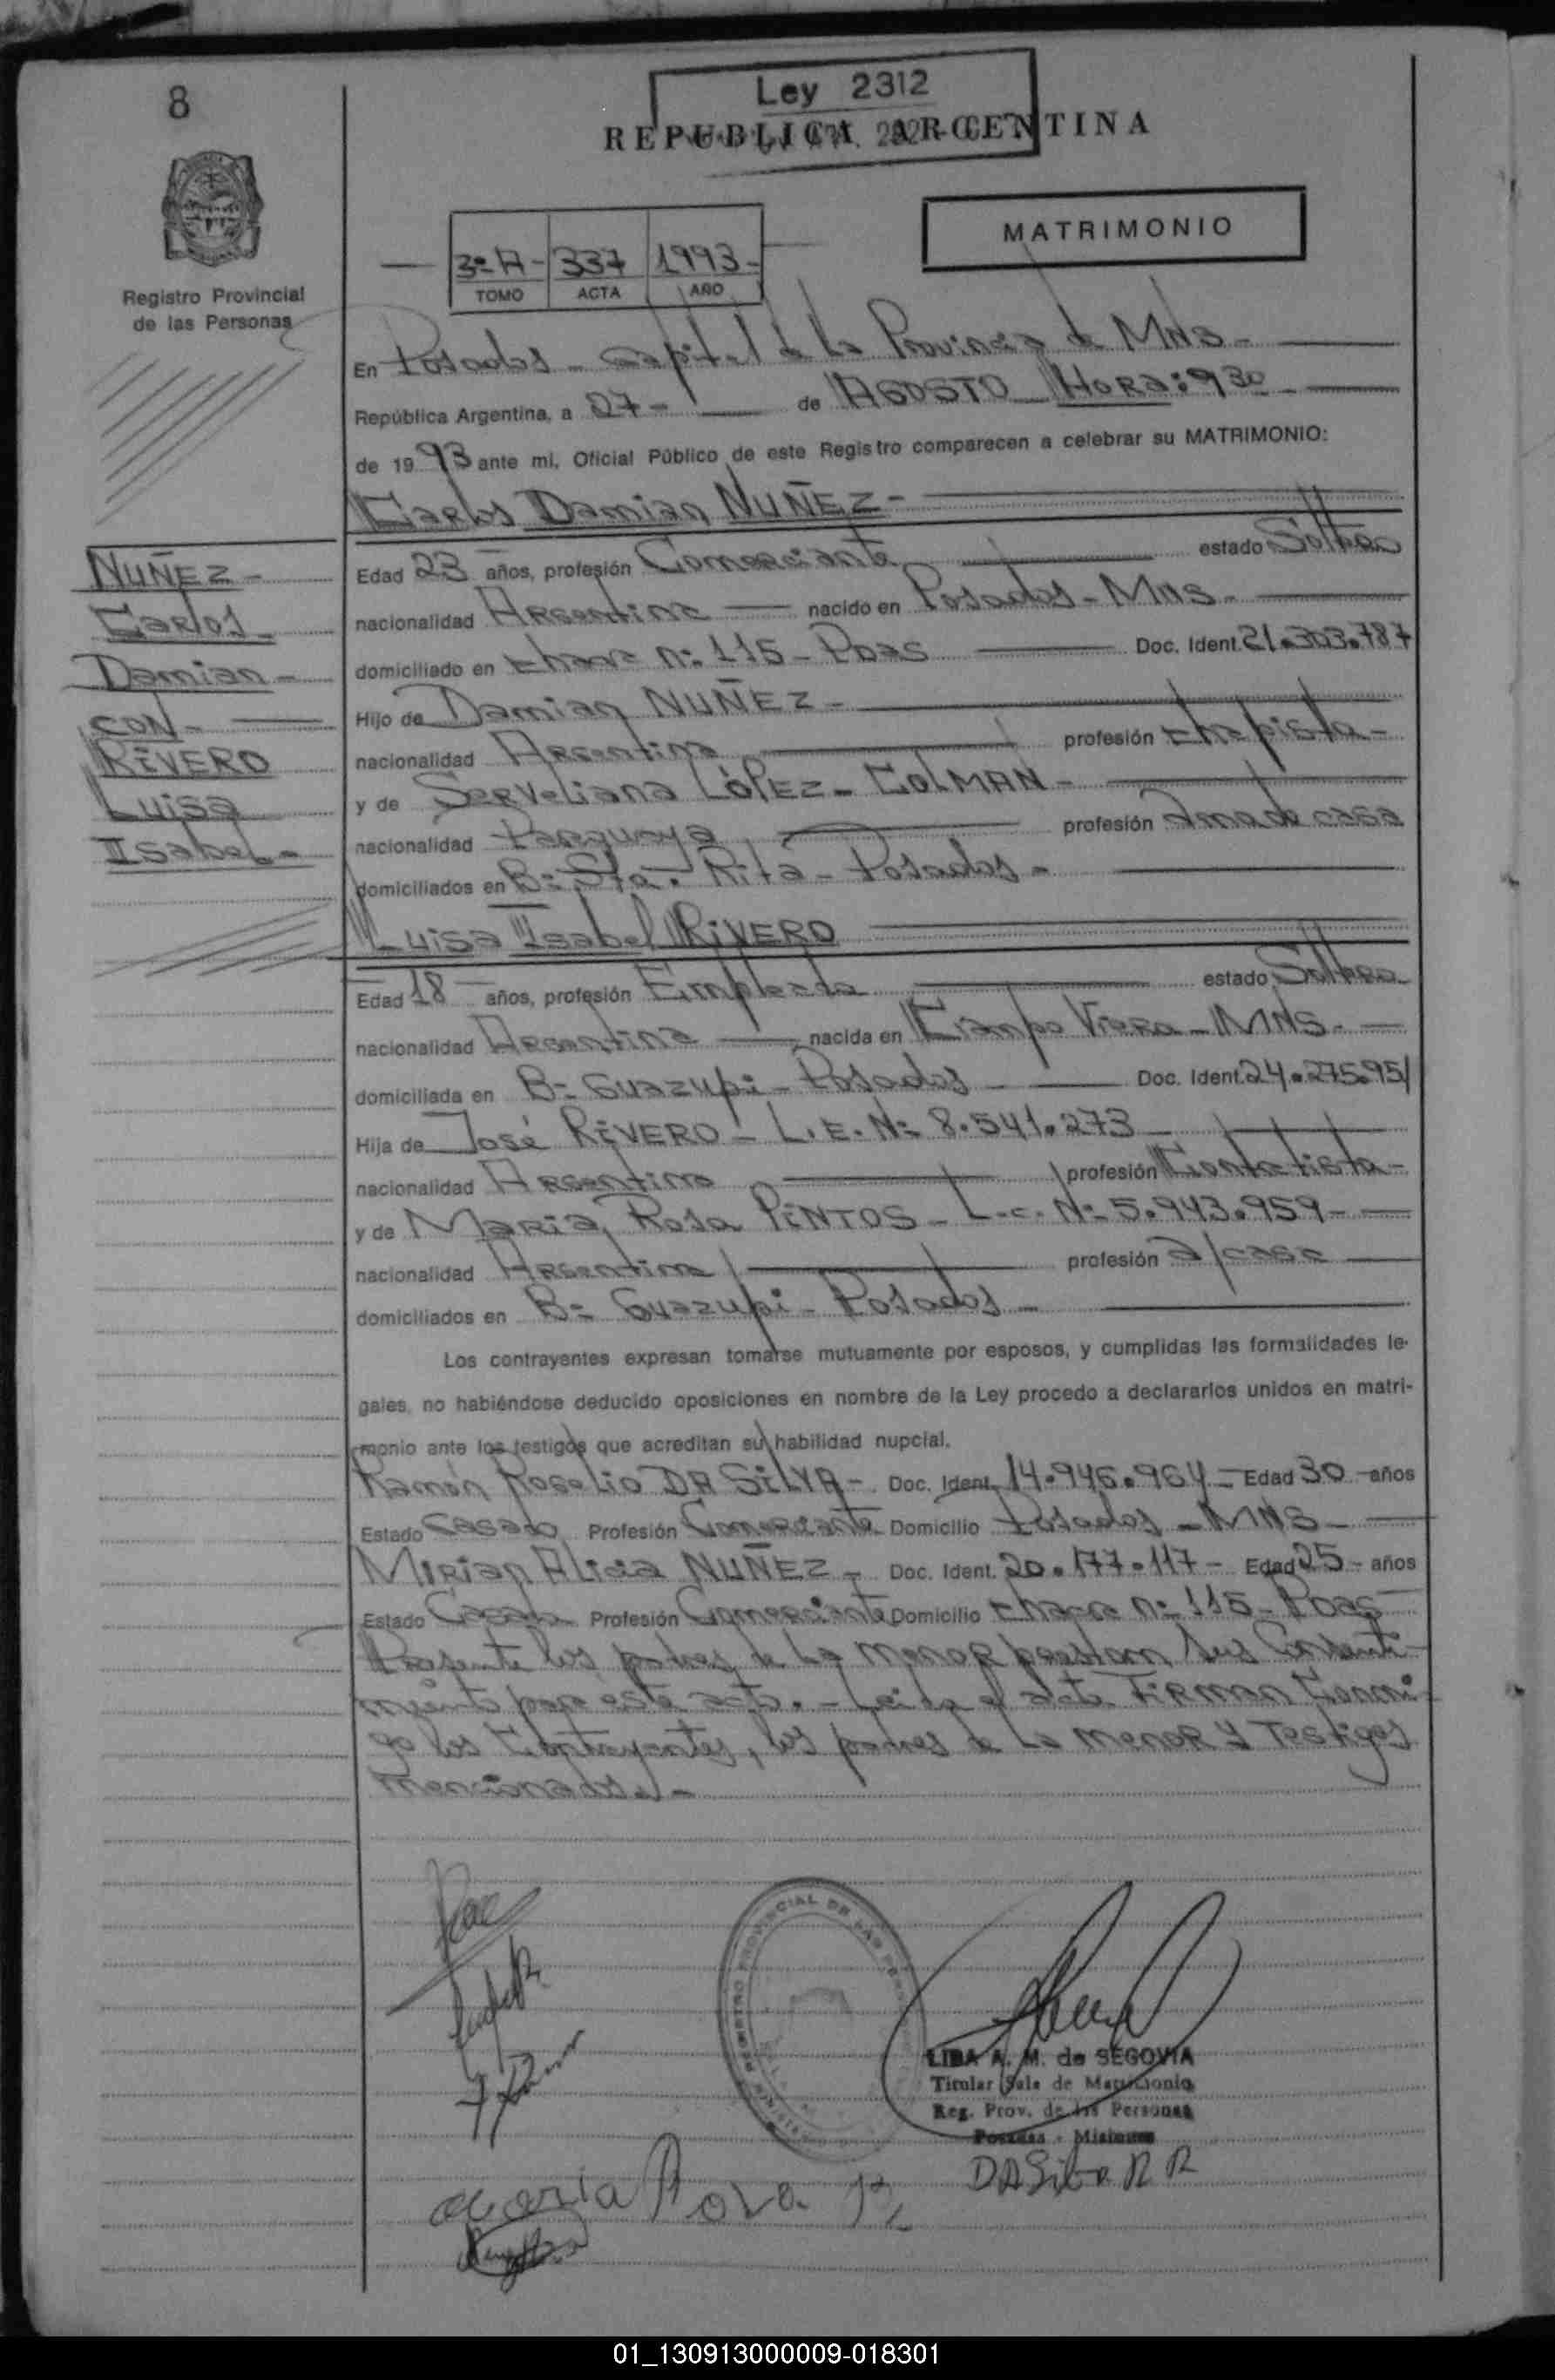 8
Ley 2312
REPUBLICA ARGENTINA
MATRIMONIO
3º A - 337 1993-
TOMO ACTA AÑO
Registro Provincial
de las Personas
En Posadas - Capital de la Provincia de MNS -
República Argentina, a 27 - de AGOSTO HORA: 930 -
de 1993 ante mi, Oficial Público de este Registro comparecen a celebrar su MATRIMONIO:
Carlos Damian NUÑEZ -
NUÑEZ -
Carlos
Damian -
CON -
RIVERO
Luisa
Isabel -
Edad 23 años, profesión Comerciante estado Soltero
nacionalidad Argentina nacido en Posadas - MNS -
domiciliado en Chacra Nº 115 - Pdas Doc. Ident. 21.303.787
Hijo de Damian NUÑEZ -
nacionalidad Argentina profesión Chapista -
y de Serveliana LÓPEZ - COLMAN -
nacionalidad Paraguaya profesión Ama de casa
domiciliados en Bº Sta. Rita - Posadas -
Luisa Isabel RIVERO
Edad 18 años, profesión Empleada estado Soltera
nacionalidad Argentina nacida en Campo Viera - MNS -
domiciliada en Bº Guazupi - Posadas Doc. Ident. 24.275.951
Hija de José RIVERO - L.E. Nº 8.541.273
nacionalidad Argentina profesión Contatista -
y de Maria Rosa PINTOS - L.C. Nº 5.943.959 -
nacionalidad Argentina profesión a/casa
domiciliados en Bº Guazupi - Posadas -
Los contrayentes expresan tomarse mutuamente por esposos, y cumplidas las formalidades le-
gales, no habiéndose deducido oposiciones en nombre de la Ley procedo a declararlos unidos en matri-
monio ante los testigos que acreditan su habilidad nupcial.
Ramón Rogelio DA SILVA - Doc. Ident. 14.946.964 - Edad 30 años
Estado Casado Profesión Comerciante Domicilio Posadas - MNS -
Mirian Alicia NUÑEZ - Doc. Ident. 20.177.117 - Edad 25 - años
Estado Casada Profesión Comerciante Domicilio Chacra Nº 115 - Pdas
Presente los padres de la menor prestan sus Consenti-
miento para este acto. - Leida el acta Firman Conmi-
go los Contrayentes, los padres de la menor y Testigos
mencionados. -
LIBA A. M. de SEGOVIA
Titular Sala de Matrimonio
Reg. Prov. de las Personas
Posadas - Misiones
DASilva R R
Maria Rosa P
01_130913000009-018301